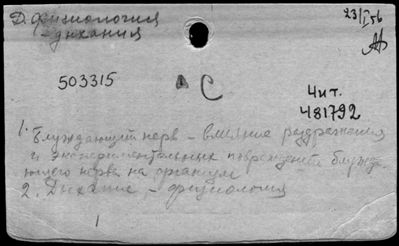 Д. физиология
дыхания
23/I 56
503315
А С
Чит.
481792
1. Блуждающий нерв – влияние раздражения
и экспериментальных повреждений блужд
ющего нерва на организм
2. Дыхание, – физиология
1